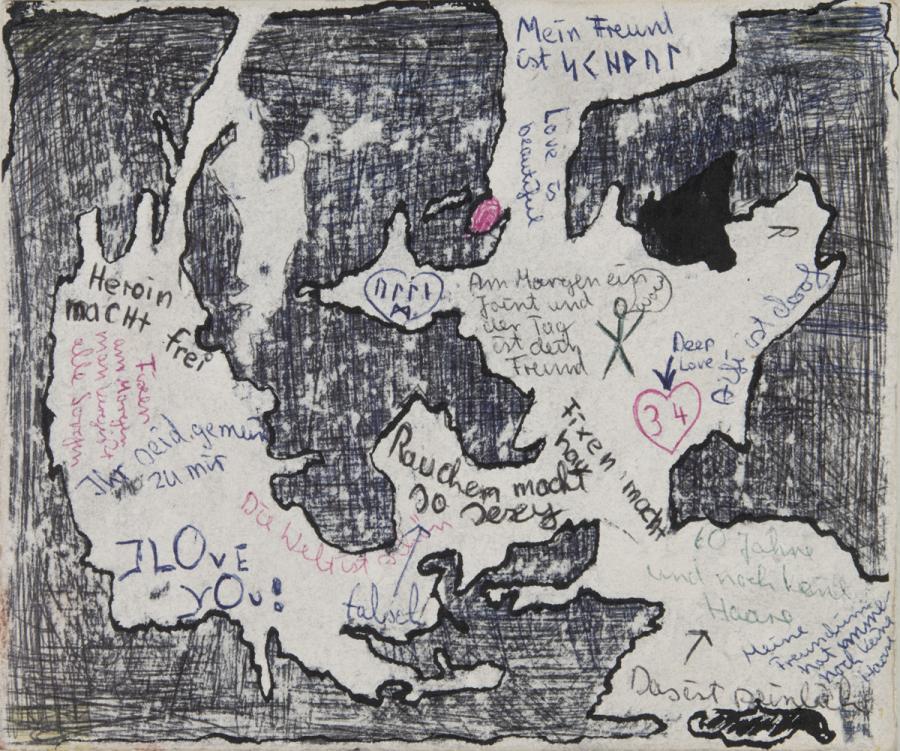 Mein Freund
ist
Love is
beautiful
R
Heroin
macht
frei
Am Morgen ein
Joint und
der Tag
ist dein
Freund
wow
Deep
Love
34
Alfi ist doof
Fixen
am Morgen
alle Sorgen
Ihr seid gemein
zu mir
Rauchen macht
so sexy
Fixen macht
Die Welt ist schön
falsch
I LOvE
yOu!
60 Jahre
und noch keine
Haare
Meine
Freundin
hat immer
noch keine
Haare
Das ist peinlich